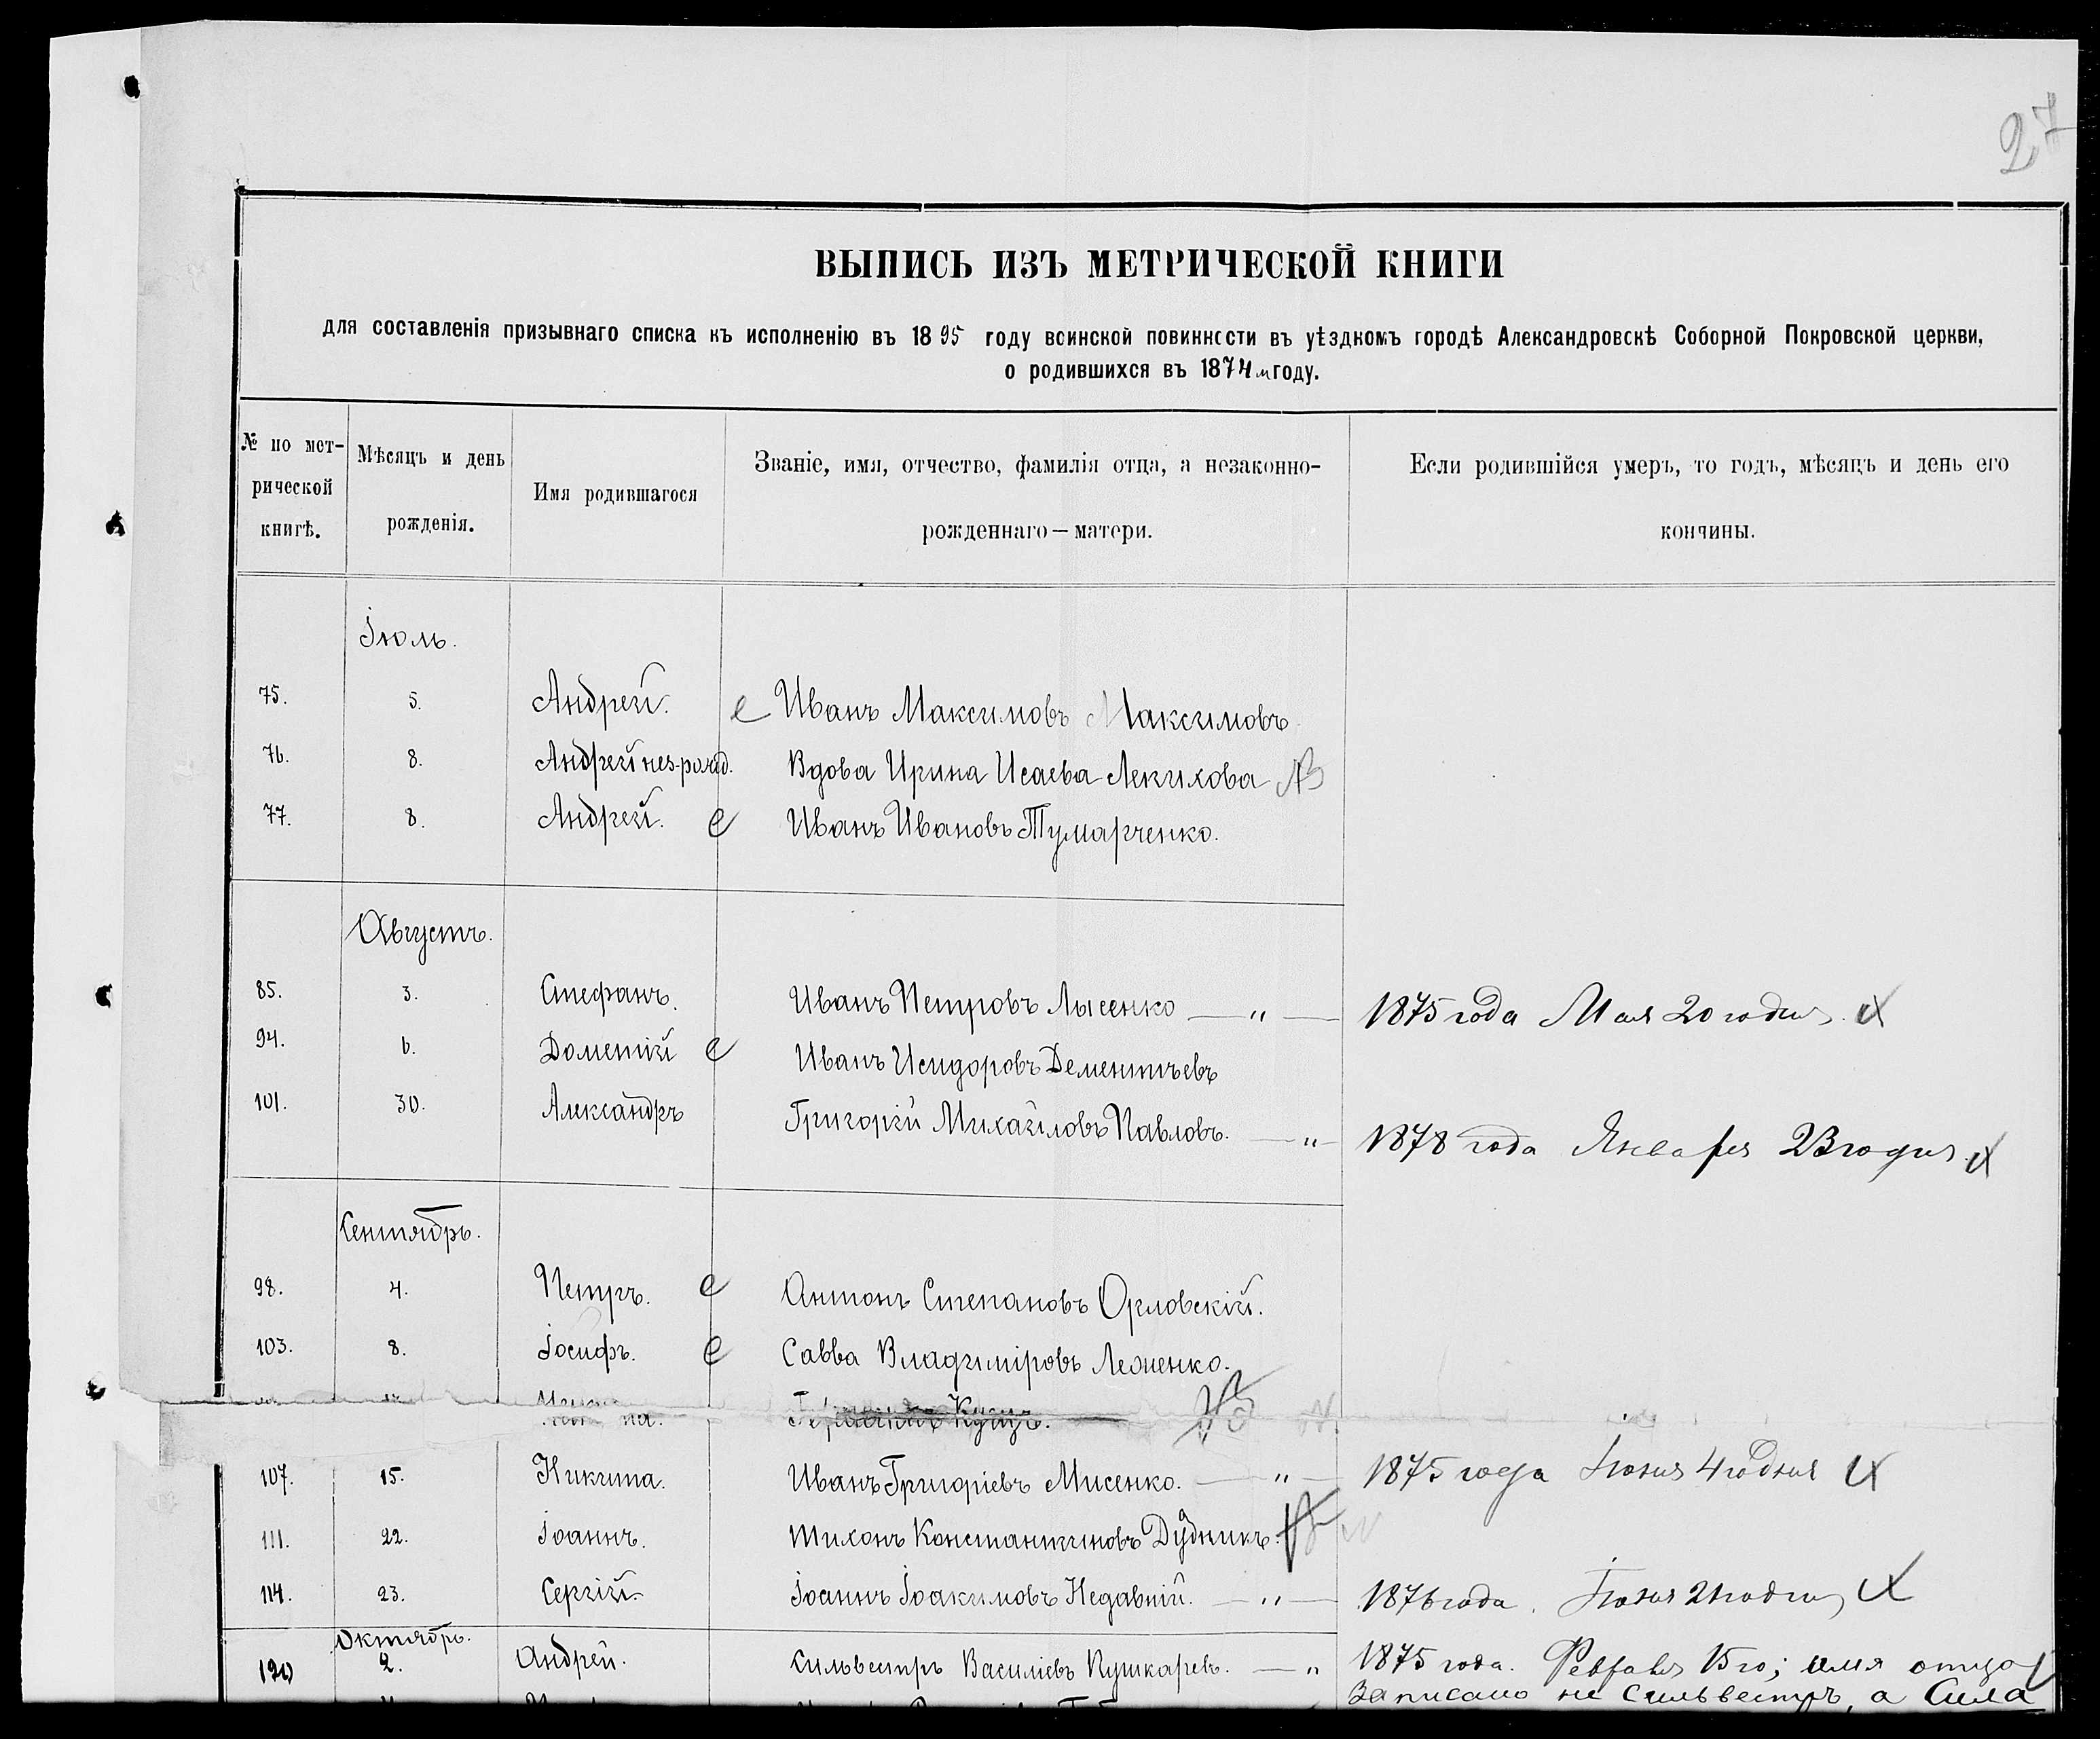 27
ВЫПИСЬ ИЗЪ МЕТРИЧЕСКОЙ КНИГИ
для составленія призывнаго списка къ исполненію въ 1895 году воинской повинности въ уѣздномъ городѣ Александровскѣ Соборной Покровской церкви,
о родившихся въ 1874 м году.
№ по мет-
рической
книгѣ.
Мѣсяцъ и день
рожденія.
Имя родившагося
Званіе, имя, отчество, фамилія отца, а незаконно-
рожденнаго — матери.
Если родившійся умеръ, то годъ, мѣсяцъ и день его
кончины.
Іюль.
75. 5. Андрей. Иванъ Максимовъ Максимовъ
76. 8. Андрей нез-рожд. Вдова Ирина Исаева Лекихова
77. 8. Андрей. Иванъ Ивановъ Тумарченко.
Августъ.
85. 3. Стефанъ. Иванъ Петровъ Лысенко — „ — 1875 года Мая 20 го дня.
94. 6. Дометій Иванъ Исидоровъ Дементьевъ
101. 30. Александръ Григорій Михайловъ Павловъ. — „ — 1878 года Января 23 го дня.
Сентябрь.
98. 4. Петръ. Антонъ Степановъ Орловскій.
103. 8. Іосифъ. Савва Владиміровъ Леженко.
107. 15. Никита. Иванъ Григоріевъ Мисенко. — „ — 1875 года Іюня 4 го дня
111. 22. Іоаннъ. Тихонъ Константиновъ Дудникъ.
114. 23. Сергій. Іоаннъ Іоакимовъ Недавній. — „ — 1876 года. Іюня 21 го дня
Октябрь.
120 2. Андрей. Сильвестръ Василіевъ Пушкаревъ. — „ 1875 года. Февраля 15 го; имя отца
записано не Сильвестръ, а Сила